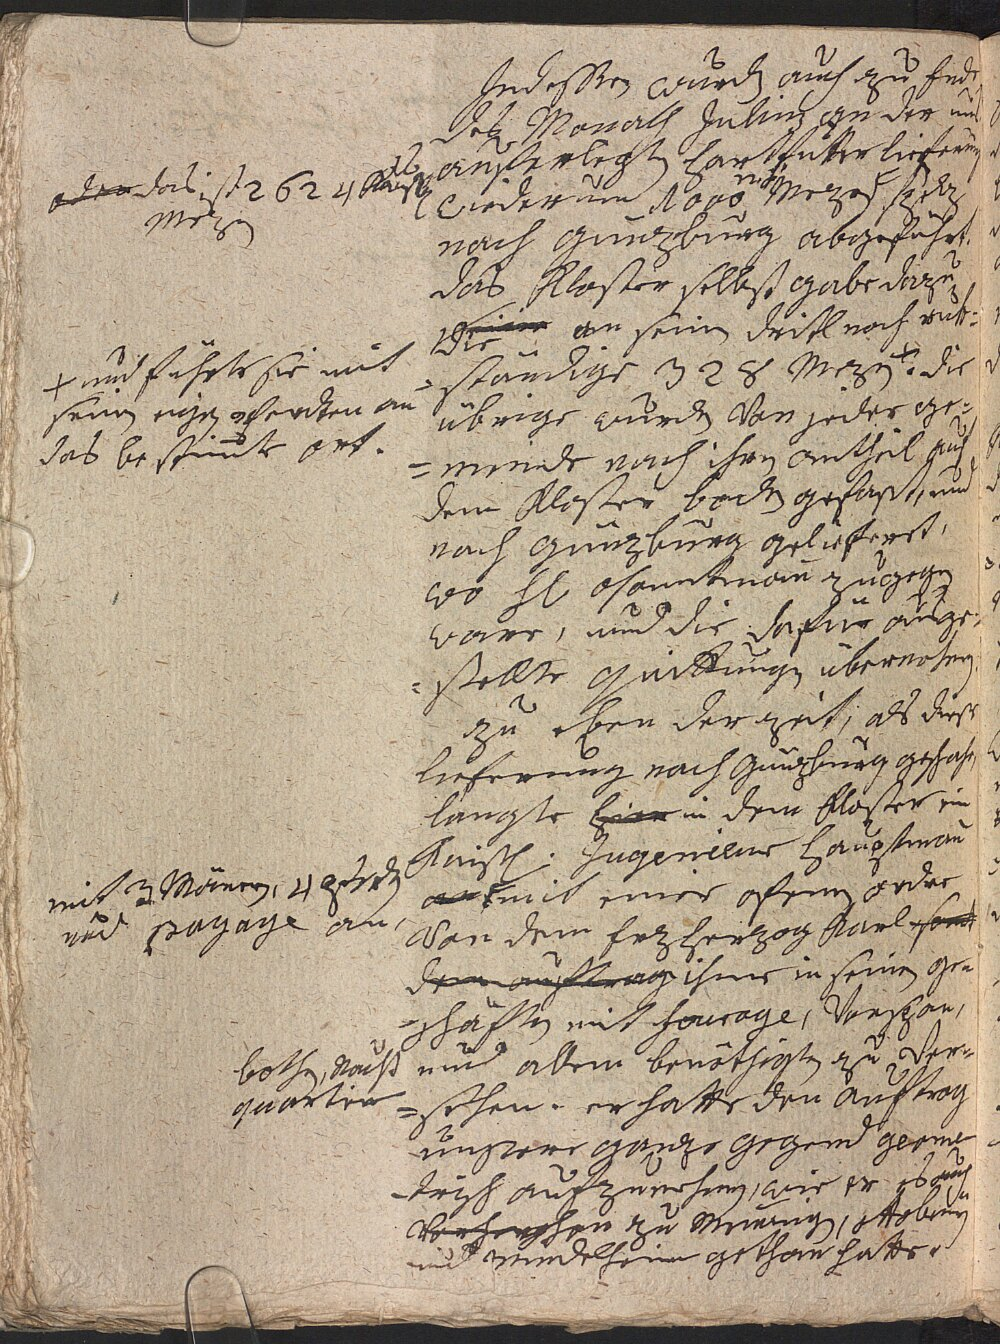 Indessen wurden auch zu Ende
des Monaths Julius an der uns
auferlegten hartfutter lieferung
wiederum 1000 Mezen
nach Günzburg abgeführt.
das Kloster selbst gabe dazu
die an seinem dritl noch rük=
=ständige 328 Mezen + die
übrige wurden von jeder ge=
=meinde nach ihrem antheil auf
dem Kloster boden gefaßt, und
nach Günzburg geliefert,
wo hl oberamtmann zugegen
ware, und die dafür ausge=
=stellte quittungen übernohmen.
zu eben der zeit, als diese
lieferung nach Günzburg geschahe,
langte hier in dem Kloster ein
Kaisl: Ingenieur Hauptman
mit einer ofenen ordre
von dem Erzherzog Karl
dem auftrag ihme in seinen ge=
=schäften mit fourage, Vorspan,
und allem benöthigten zu ver=
=sehen. er hatte den auftrag
unsere ganze gegend geome
trisch aufzunehmen, wie er es auch
zu Memming, ottobeuren
und Mindelheim gethan hatte.
oder das ist 2624
Mezen
+ und führte sie mit
seinen eigen pferdten an
das bestimte ort.
mit 3 Männern, 4 pferdten
und pagage an,
bothen, Nacht
quartier